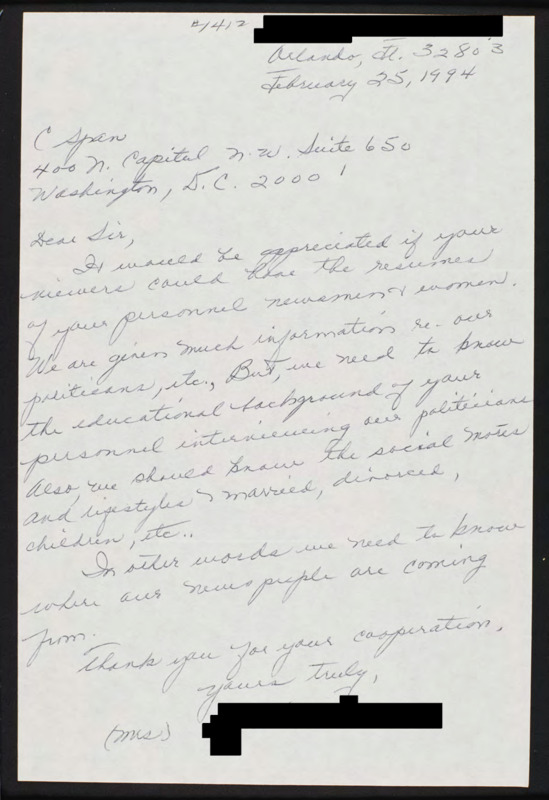 #1412
Orlando, Fl. 32803
February 25, 1994
C Span
400 N. Capital N.W. Suite 650
Washington, D.C. 20001
Dear Sir,
It would be appreciated if your
viewers could have the resumes
of your personnel newsmen & women.
We are given much information re. our
politicians, etc., But, we need to know
the educational background of your
personnel interviewing our politicians
Also, we should know the social mores
and lifestyles & married, divorced,
children, etc..
In other words we need to know
where our news people are coming
from.
Thank you for your cooperation,
yours truly,
(Mrs)